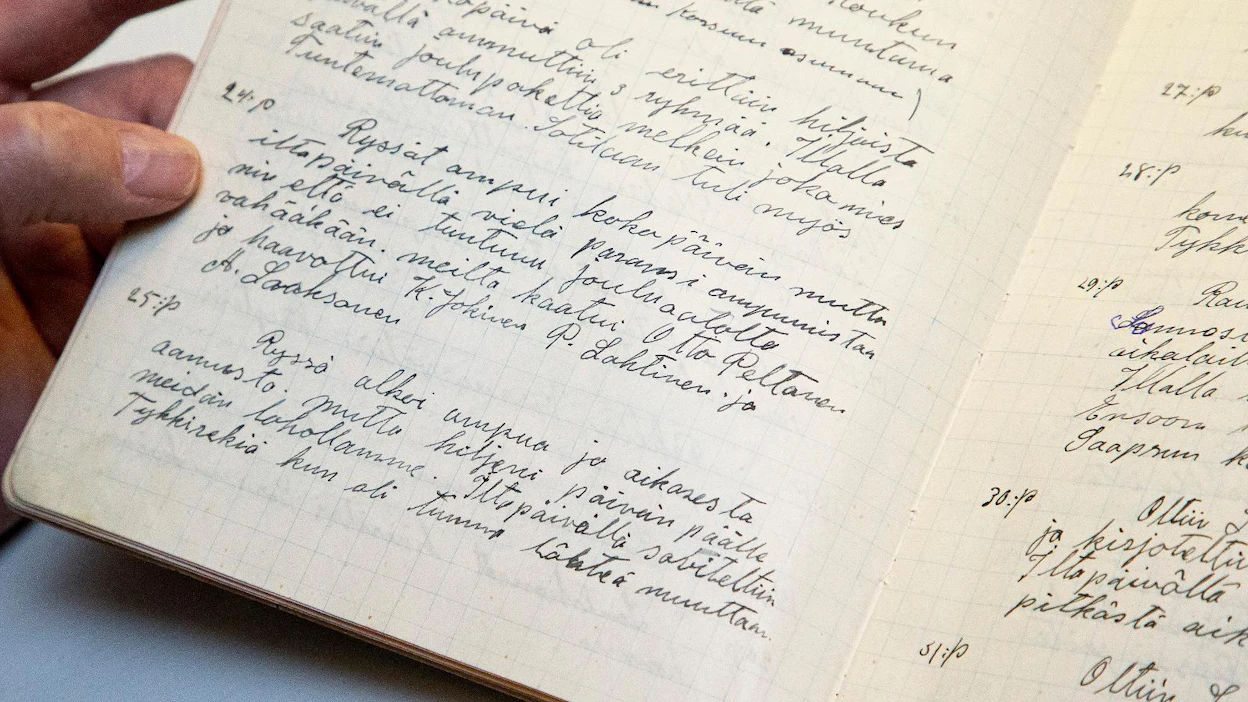 muutama
korsuun asumaan)
oli erittäin hiljaista
ammuttiin 3 ryhmää. Illalla
saatiin joulupakettia melkein joka mies
Tuntemattoman Sotilaan tuli myös
24:p
Ryssät ampui koko päivän mutta
iltapäivällä vielä paransi ampumistaan
niin että ei tuntunu jouluaatolta
vähääkään. meiltä kaatui Otto Peltonen
ja haavottui K. Jokinen P. Lahtinen. ja
A. Laaksonen
25:p
Ryssä alkoi ampua jo aikasesta
aamusta. mutta hiljeni päivän päälle
meidän lohollamme. Iltapäivällä sovitettiin
Tykkirekiä kun oli lähteä muuttaan.
27:p
28:p
29:p
Illalla
Ensoon
Saapuun
30:p
Oltiin
ja kirjotettiin
Iltapäivällä
pitkästä
31:p
Oltiin